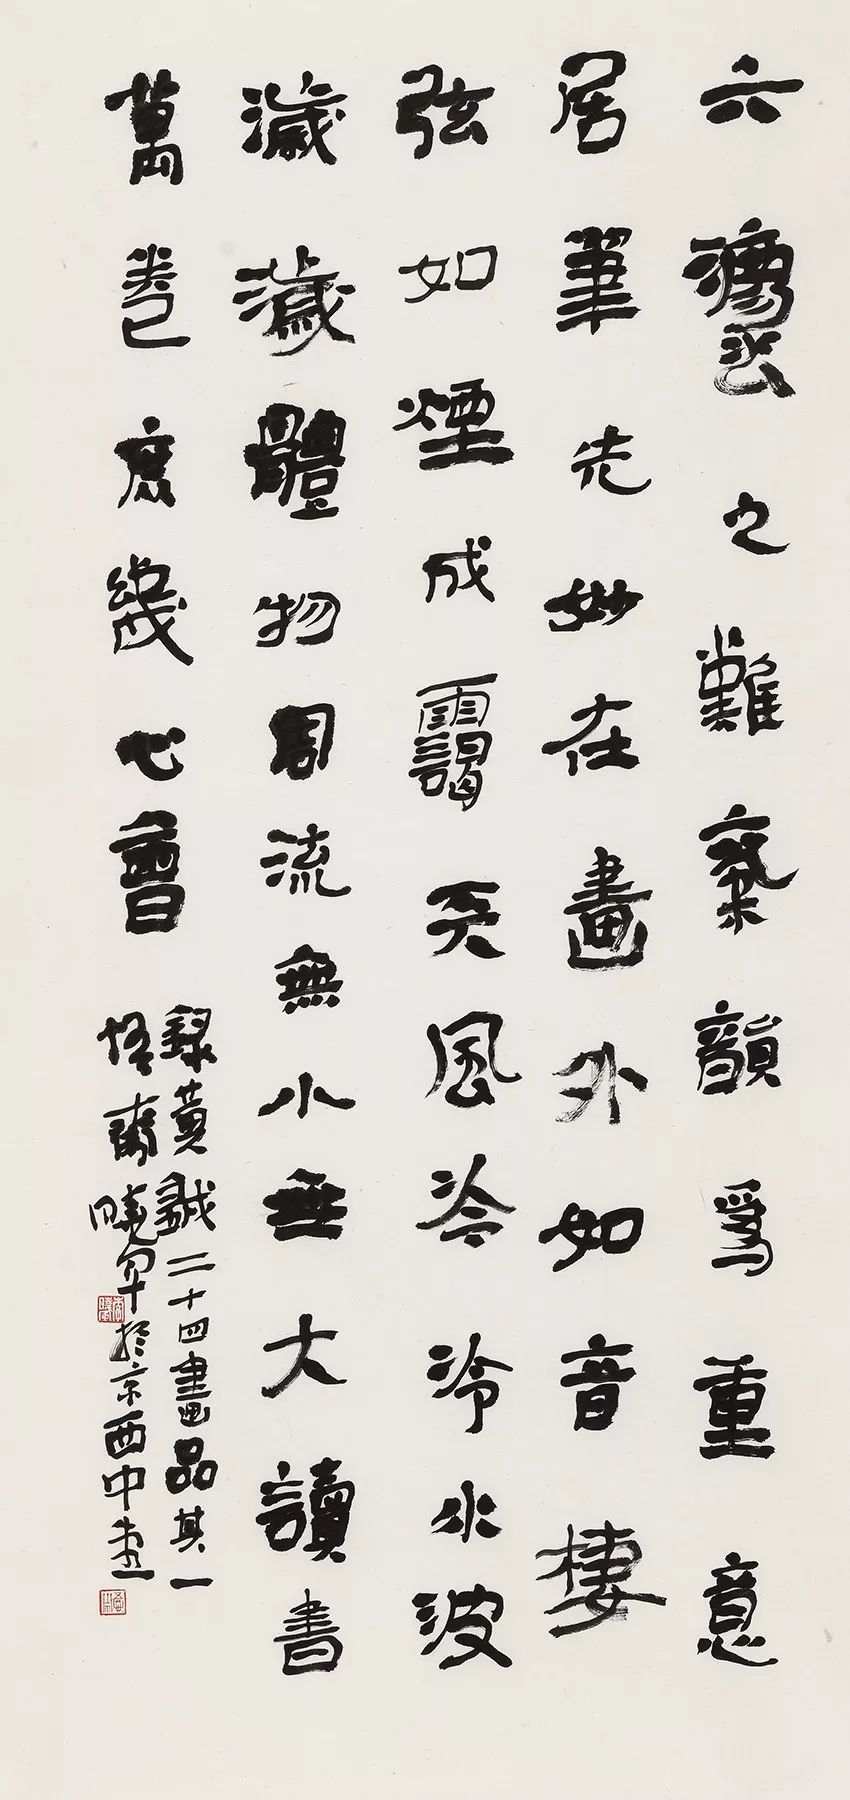 六灋之難氣韻為重意
居筆先妙在畫外如音棲
弦如煙成靄天風泠泠水波
濊濊體物周流無小無大讀書
萬卷庶幾心會
錄黃鉞二十四畫品其一
齋曉軍於京西中